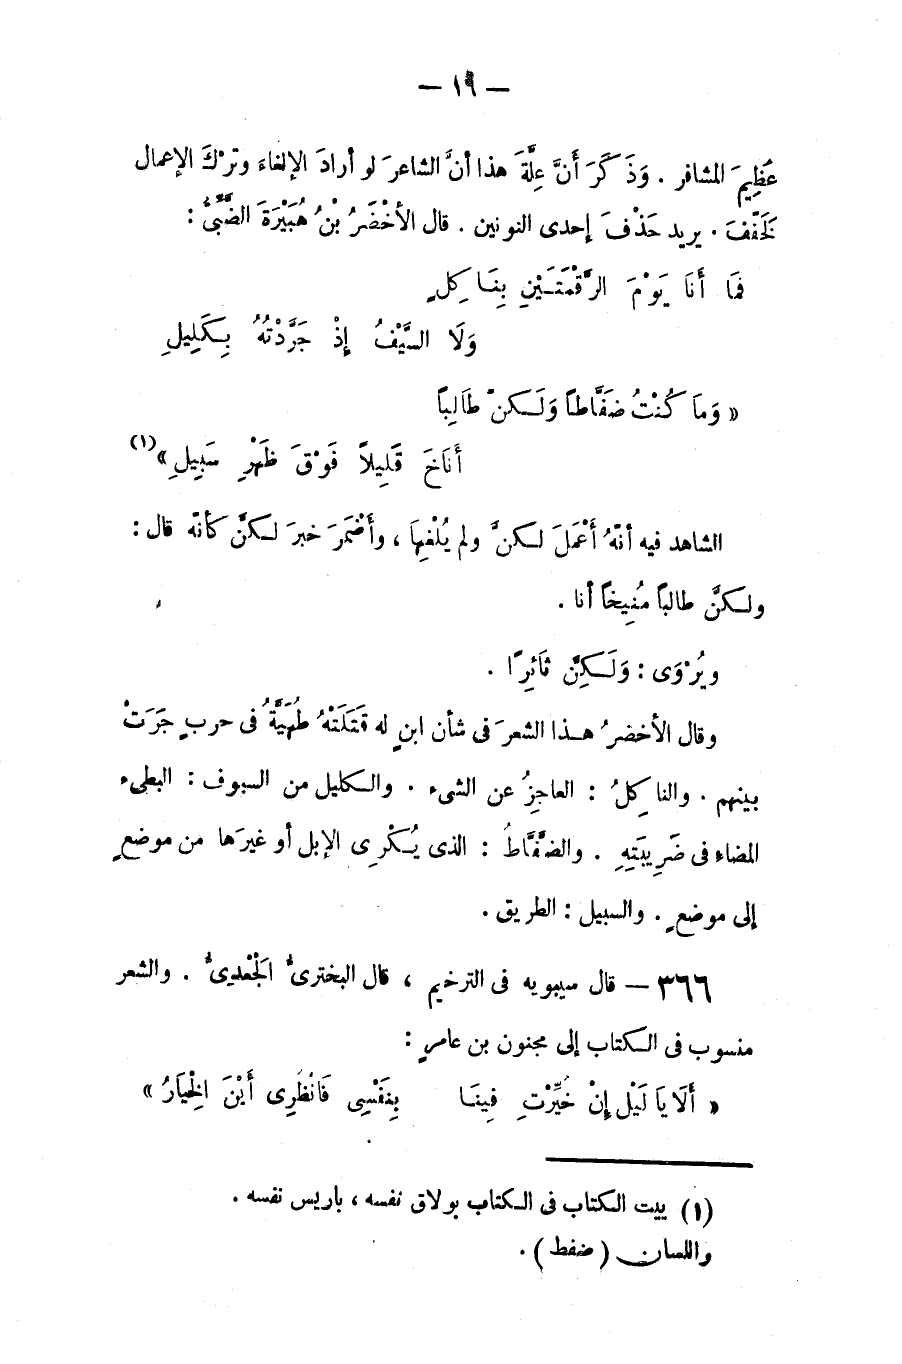 — ١٩ —
عَظِيمَ المشافر . وَذَكَرَ أَنَّ عِلَّةَ هذا أنَّ الشاعرَ لو أرادَ الإلغاءَ وترْكَ الإعمال
لَخَفَّفَ . يريد حَذْفَ إحدى النونين . قال الأخْضَرُ بْنُ هُبَيْرَةَ الضَّبِّىُّ :
فَمَا أَنَا يَوْمَ الرَّقْمَتَيْنِ بِنَاكِلٍ
وَلَا السَّيْفُ إِذْ جَرَّدْتُهُ بِكَلِيلِ
« وَمَا كُنْتُ ضَفَّاطاً وَلَكنّ طَالِباً
أَنَاخَ قَلِيلاً فَوْقَ ظَهْرِ سَبِيلِ » (١)
الشاهد فيه أنّهُ أَعْمَلَ لكنَّ ولم يُلْغِهَا ، وأَضْمَرَ خبرَ لكنَّ كأنّه قال :
ولكنَّ طالباً مُنِيخاً أنا .
ويُرْوَى : وَلَكِنَّ ثَائِرًا .
وقال الأخضرُ هذا الشعرَ فى شأن ابنٍ له قَتَلَتْهُ طُهَيَّةُ فى حربٍ جَرَتْ
بينهم . والناكِلُ : العاجِزُ عن الشىء . والكليل من السيوف : البطىء
المضاء فى ضَرِيبَتِهِ . والضَّفَّاطُ : الذى يُكْرِى الإبل أو غيرَها من موضعٍ
إلى موضعٍ . والسبيل : الطريق .
٣٦٦ — قال سيبويه فى الترخيم ، قال البخترىُّ الجَعْدِىُّ . والشعر
منسوب فى الكتاب إلى مجنون بن عامرٍ :
« أَلَا يَا لَيْلَ إِنْ خُيِّرْتِ فِينَا بِنَفْسِى فَانْظُرِى أَيْنَ الخِيَارُ »
(١) بيت الكتاب فى الكتاب بولاق نفسه ، باريس نفسه .
واللسان ( ضفط ) .